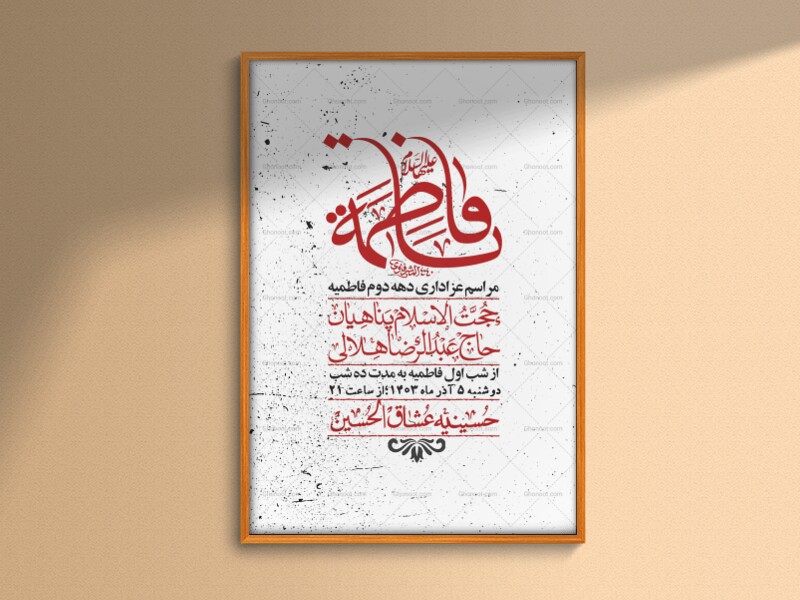 فاطمة
علیها السلام
مراسم عزاداری دهه دوم فاطمیه
حُجَّتُ الاسلام پناهیان
حاج عَبدُالرِّضا هلالی
از شب اول فاطمیه به مدت ده شب
دوشنبه ۵ آذر ماه ۱۴۰۳؛از ساعت ۲۱
حُسینیّه عُشّاق الحُسین
Ghonoot.com